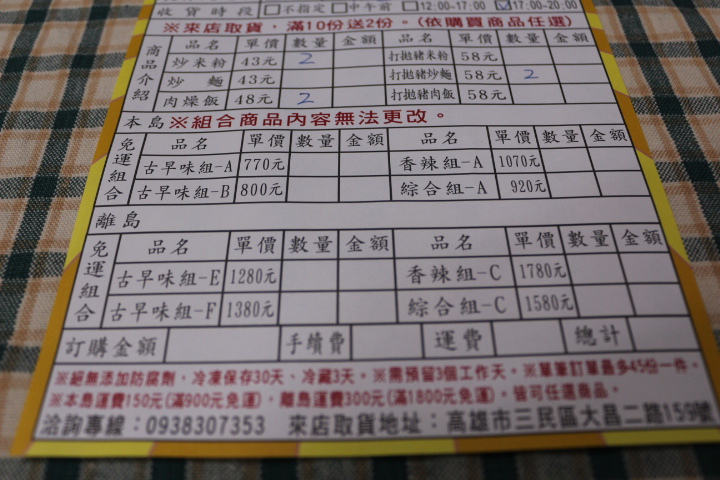 收貨時段 □不指定 □中午前 □12:00-17:00 ☑17:00-20:00
※來店取貨，滿10份送2份。(依購買商品任選)
商品介紹
品名 單價 數量 金額 品名 單價 數量 金額
炒米粉 43元 2 打拋豬米粉 58元
炒麵 43元 打拋豬炒麵 58元 2
肉燥飯 48元 2 打拋豬肉飯 58元
本島※組合商品內容無法更改。
免運組合
品名 單價 數量 金額 品名 單價 數量 金額
古早味組-A 770元 香辣組-A 1070元
古早味組-B 800元 綜合組-A 920元
離島
免運組合
品名 單價 數量 金額 品名 單價 數量 金額
古早味組-E 1280元 香辣組-C 1780元
古早味組-F 1380元 綜合組-C 1580元
訂購金額 手續費 運費 總計
※絕無添加防腐劑，冷凍保存30天、冷藏3天。※需預留3個工作天。※單筆訂單最多45份一件。
※本島運費150元(滿900元免運)，離島運費300元(滿1800元免運)。皆可任選商品。
洽詢專線：0938307353 來店取貨地址：高雄市三民區大昌二路159號